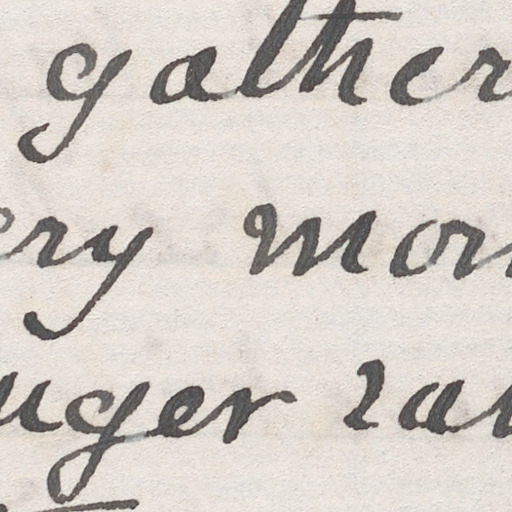 gather
ery mor
uger rat